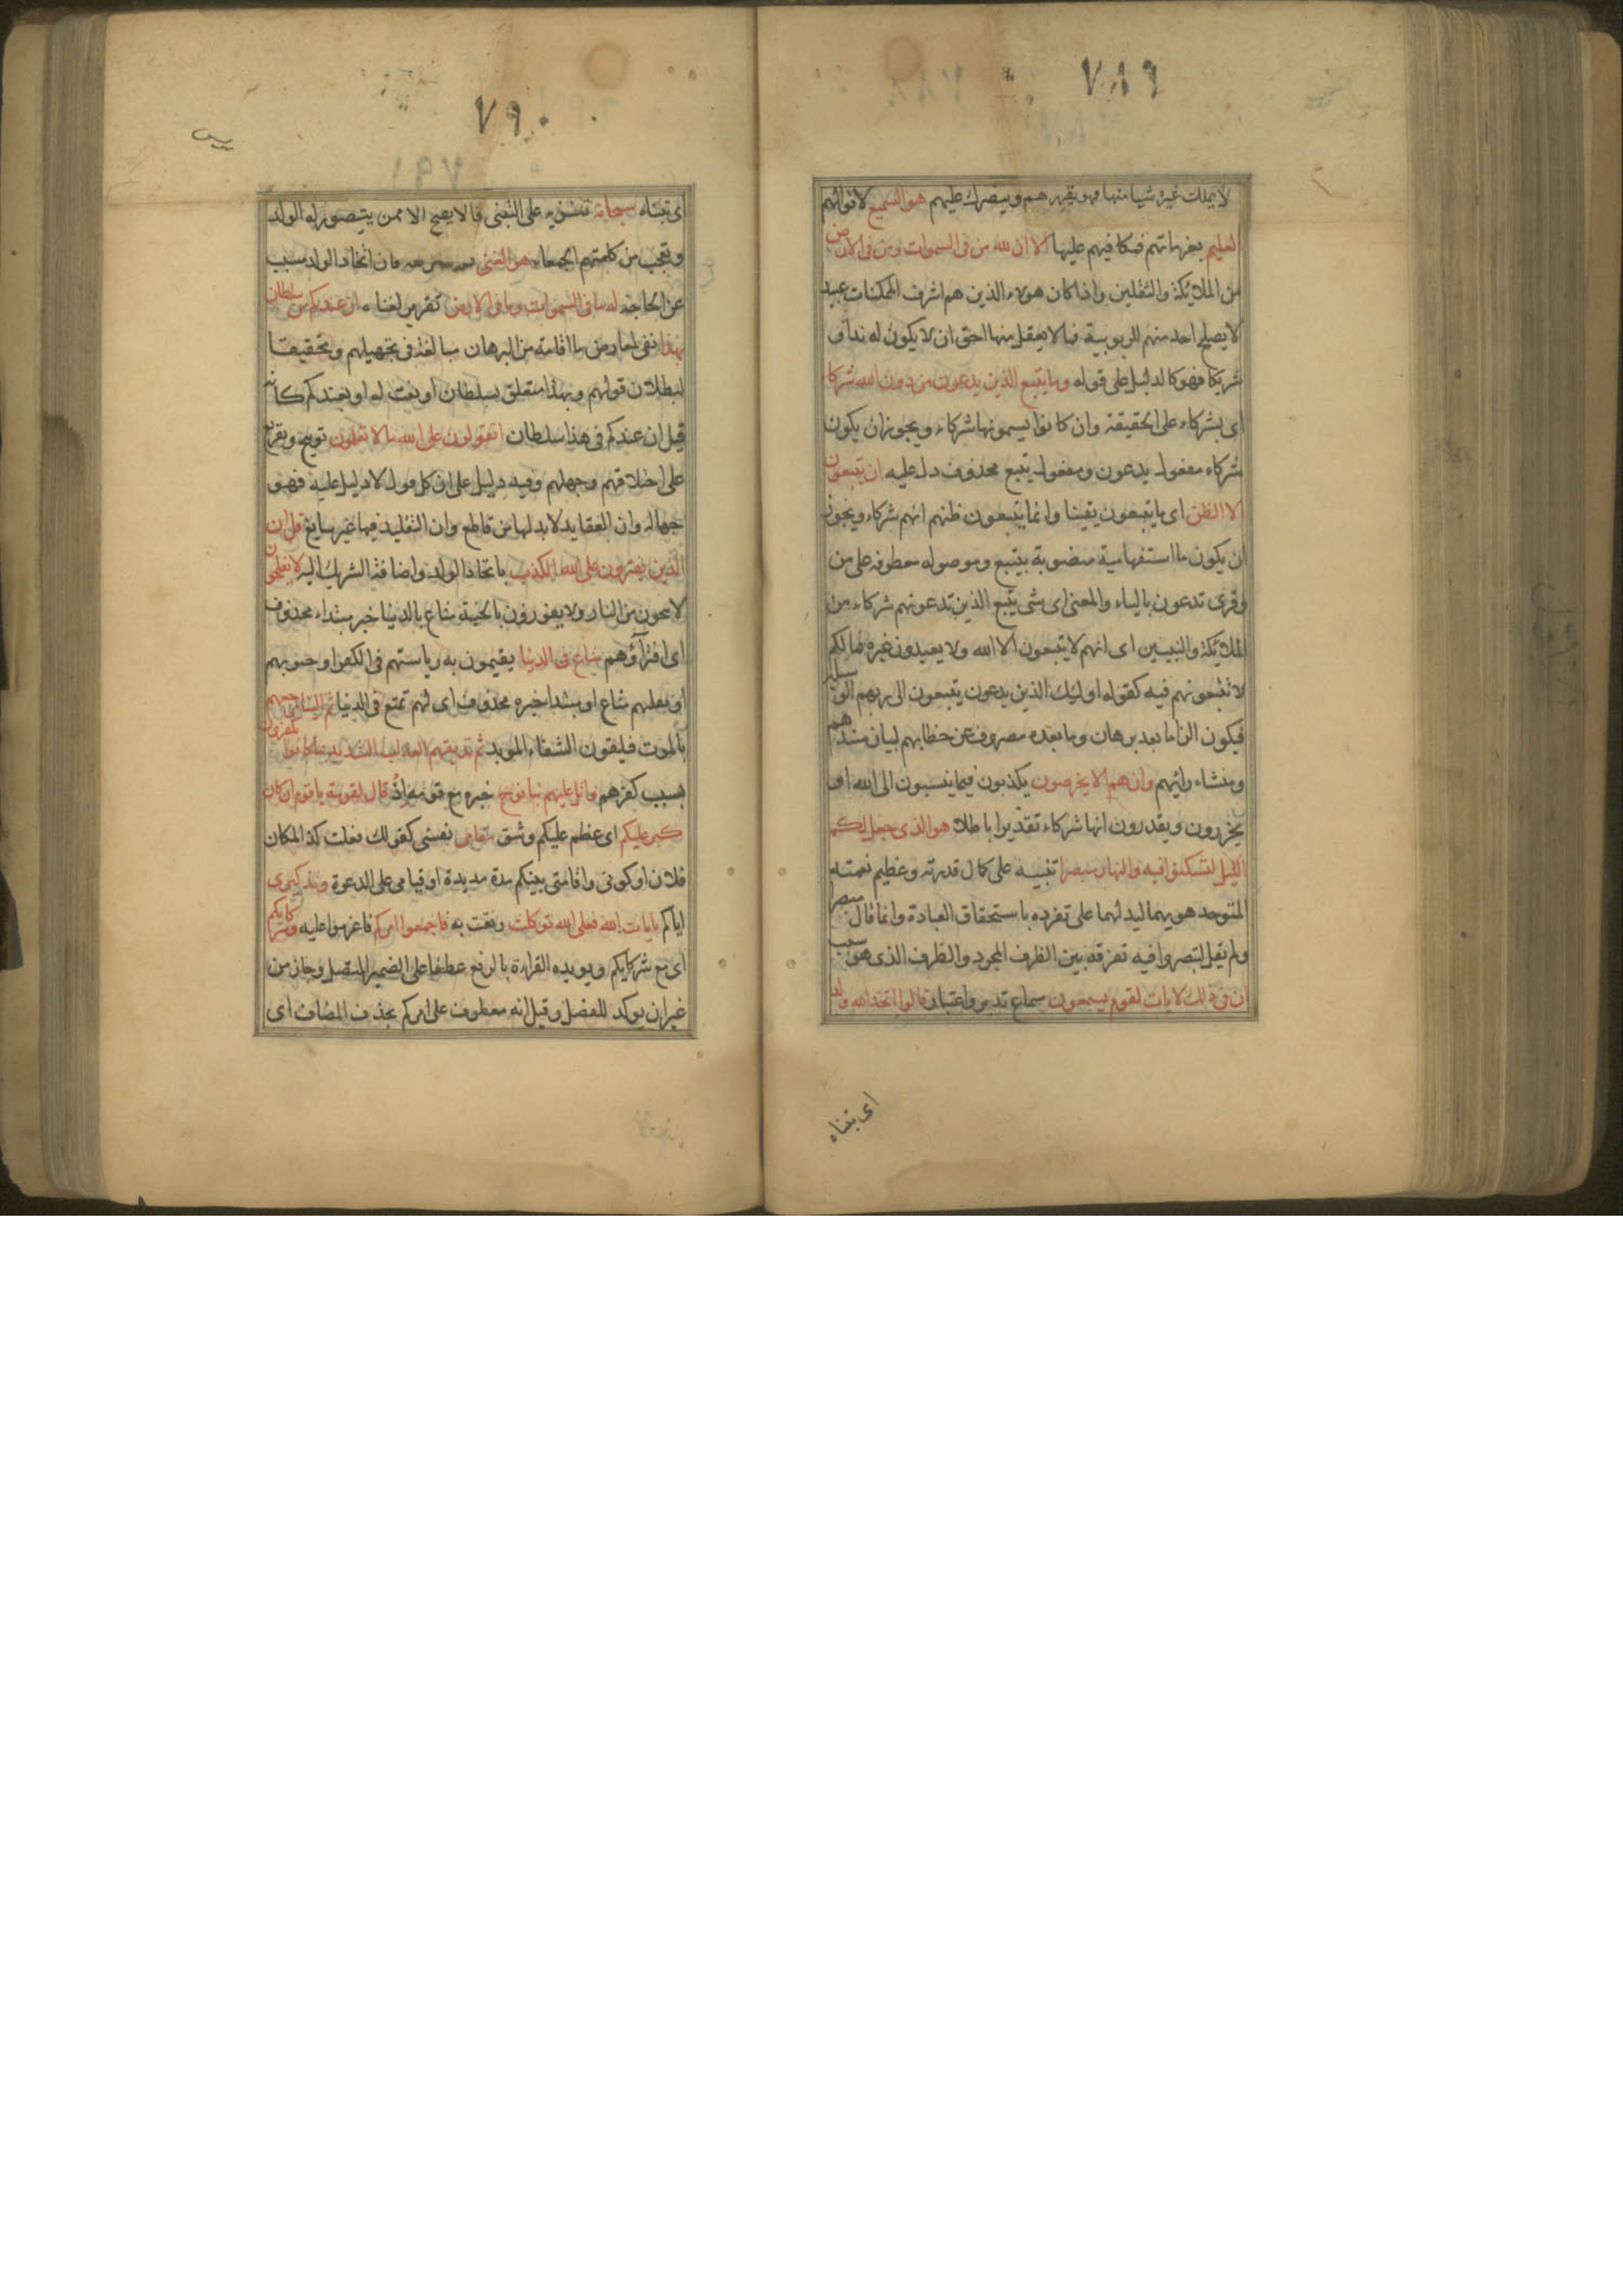 ٧٨٩
لا يملك غيره شيا منها فهو يقهرهم وينصرك عليهم هو السميع لاقوالهم
العليم بعزماتهم فيكافيهم عليها الا ان لله من فى السموات ومن فى الارض
من الملائكة والثقلين واذا كان هولاء الذين هم اشرف الممكنات عبيد
لا يصلح احد منهم للربوبية فما لا يعقل منها احق ان لا يكون له ندا او
شريكا فهو كالدليل على قوله وما يتبع الذين يدعون من دون الله شركاء
اى شركاء على الحقيقة وان كانوا يسمونها شركاء ويجوز ان يكون
شركاء مفعول يدعون ومفعول يتبع محذوف دل عليه ان يتبعون
الا الظن اى ما يتبعون يقينا وانما يتبعون ظنهم انهم شركاء ويجوز
ان يكون ما استفهامية منصوبة بيتبع وموصوله معطوفة على من
وقرى تدعون بالياء والمعنى اى شى يتبع الذين تدعونهم شركاء من
الملائكة والنبيين اى انهم لا يتبعون الا الله ولا يعبدون غيره فما لكم
لا تتبعونهم فيه كقوله اوليك الذين يدعون يتبعون الى ربهم الوسيلة
فيكون الزاما بعد برهان وما بعده مصروف عن خطابهم لبيان سندهم
ومنشاء رائهم وان هم الا يخرصون يكذبون فيما ينسبون الى الله او
يحزرون ويقدرون انها شركاء تقديرا باطلا هو الذى جعل لكم
الليل لتسكنوا فيه والنهار مبصرا تنبيه على كمال قدرته وعظيم نعمته
المتوحد هو بهما ليدلهما على تفرده باستحقاق العبادة وانما قال مبصرا
ولم يقل لتبصروا فيه تفرقة بين الظرف المجرد والظرف الذى هو سبب
ان فى ذلك لايات لقوم يسمعون سماع تدبر واعتبار قالوا اتخذ الله ولدا
اى تبناه
٧٩٠
اى تبناه سبحانه تنزيه على التبنى فالا يصح الا ممن يتصور له الولد
وتعجب من كلمتهم الحمقاء هو الغنى فان اتخاذ الولد مسبب
عن الحاجة له ما فى السموات وما فى الارض تقرير لغناه ان عندكم من سلطان
بهذا نفى لمعارض ما اقامه من البرهان مبالغة فى تجهيلهم وتحقيقا
لبطلان قولهم وبهذا متعلق بسلطان او نعت له او بعندكم كانه
قيل ان عندكم فى هذا سلطان اتقولون على الله ما لا تعلمون توبيخ وتقريع
على اختلاقهم وجهلهم وفيه دليل على ان كل قول لا دليل عليه فهو
جهالة وان العقايد لا بد لها من قاطع وان التقليد فيها غير سايغ قل ان
الذين يفترون على الله الكذب باتخاذ الولد واضافة الشريك اليه لا يفلحون
لا ينجون من النار ولا يفوزون بالجنة متاع بالدنيا خبر مبتداء محذوف
اى افتراؤهم متاع فى الدنيا يقيمون به رياستهم فى الكفر او حيوتهم
او تقلبهم متاع او مبتدا خبره محذوف اى لهم تمتع فى الدنيا ثم الينا مرجعهم
بالموت فيلقون الشقاء الموبد ثم نذيقهم العذاب الشديد بما كانوا يكفرون
بسبب كفرهم واتل عليهم نبا نوح خبره مع قومه اذ قال لقومه يا قوم ان كان
كبر عليكم اى عظم عليكم وشق مقامى نفسى كقولك فعلت كذا لمكان
فلان او كونى واقامتى بينكم مدة مديدة او قيامى على الدعوة وتذكيرى
اياكم بايات الله فعلى الله توكلت وثقت به فاجمعوا امركم فاعزموا عليه وشركايكم
اى مع شركايكم ويويده القراءة بالرفع عطفا على الضمير المتصل وجاز من
غير ان يوكد للفصل وقيل انه معطوف على امركم بحذف المضاف اى